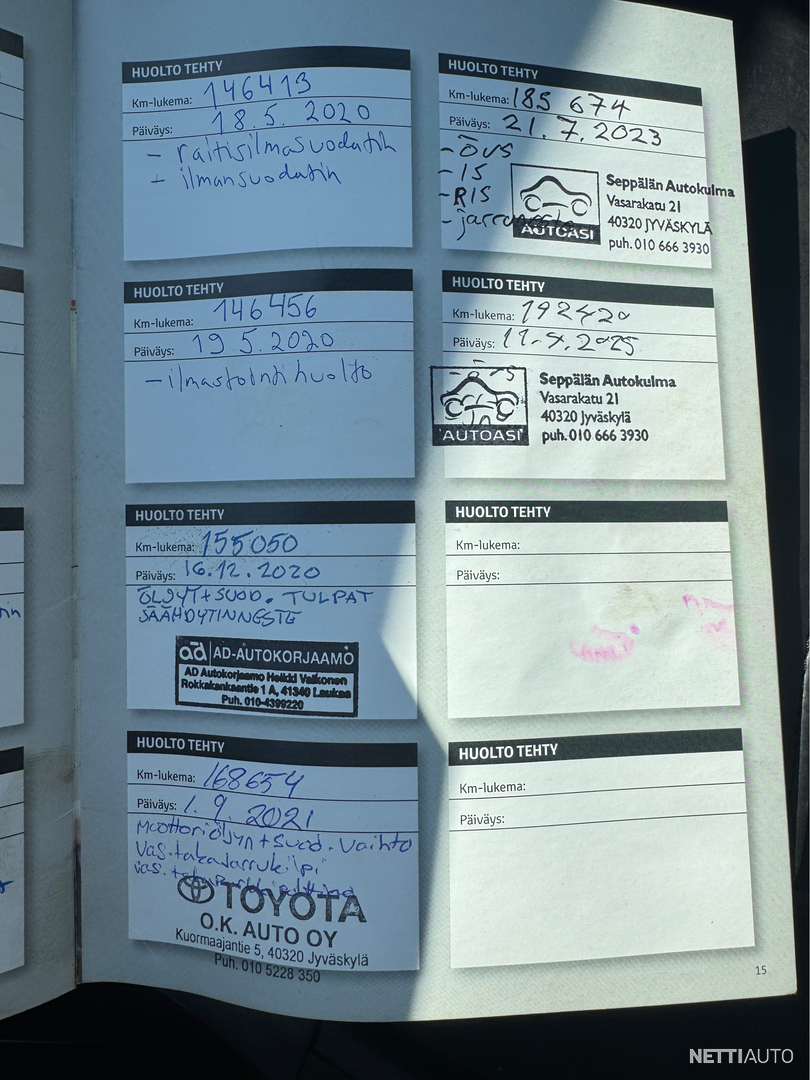 HUOLTO TEHTY
Km-lukema: 146413
Päiväys: 18.5.2020
- raitisilmasuodatin
- ilmansuodatin
HUOLTO TEHTY
Km-lukema: 146456
Päiväys: 19.5.2020
- ilmastointihuolto
HUOLTO TEHTY
Km-lukema: 155050
Päiväys: 16.12.2020
ÖLJYT + SUOD. TULPAT
JÄÄHDYTINNESTE
ad AD-AUTOKORJAAMO
AD Autokorjaamo Heikki Valkonen
Rokkakankaantie 1 A, 41340 Laukaa
Puh. 010-4399220
HUOLTO TEHTY
Km-lukema: 168654
Päiväys: 1.9.2021
Moottoriöljyn + suod. vaihto
Vas. takajarrukilpi
vas.
TOYOTA
O.K. AUTO OY
Kuormaajantie 5, 40320 Jyväskylä
Puh. 010 5228 350
HUOLTO TEHTY
Km-lukema: 185 674
Päiväys: 21.7.2023
- ÖVS
- IS
- RIS
- jarruneste
AUTOASI
Seppälän Autokulma
Vasarakatu 21
40320 JYVÄSKYLÄ
puh. 010 666 3930
HUOLTO TEHTY
Km-lukema: 192420
Päiväys:
AUTOASI
Seppälän Autokulma
Vasarakatu 21
40320 Jyväskylä
puh. 010 666 3930
HUOLTO TEHTY
Km-lukema:
Päiväys:
HUOLTO TEHTY
Km-lukema:
Päiväys:
15
NETTIAUTO